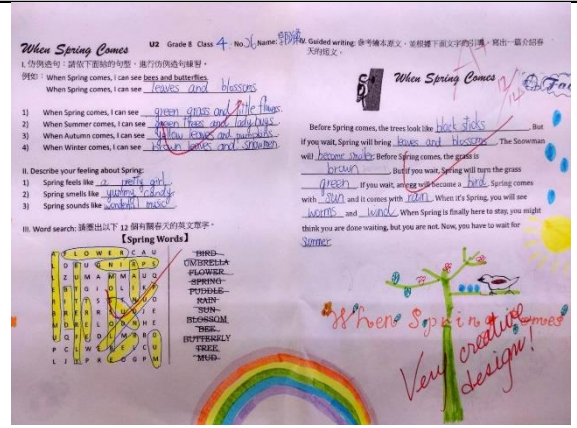 When Spring Comes
U2 Grade 8 Class 4 No. 26 Name:
I. 仿例造句：請依下面給的句型，進行仿造句練習。
例如：When Spring comes, I can see bees and butterflies.
When Spring comes, I can see leaves and blossoms
1) When Spring comes, I can see green grass and little flowers.
2) When Summer comes, I can see green trees and lady bugs
3) When Autumn comes, I can see yellow leaves and pumpkins.
4) When Winter comes, I can see brown leaves and snowmen.
II. Describe your feeling about Spring:
1) Spring feels like a pretty girl
2) Spring smells like yummy candy
3) Spring sounds like wonderful music
III. Word search: 請圈出以下 12 個有關春天的英文單字。
【Spring Words】
BIRD
UMBRELLA
FLOWER
SPRING
PUDDLE
RAIN
SUN
BLOSSOM
BEE
BUTTERFLY
TREE
MUD
IV. Guided writing: 參考繪本原文，並根據下面文字的引導，寫出一篇介紹春
天的短文。
When Spring Comes
Before Spring comes, the trees look like black sticks. But
if you wait, Spring will bring leaves and blossoms. The Snowman
will become smaller. Before Spring comes, the grass is
brown. But if you wait, Spring will turn the grass
green. If you wait, an egg will become a bird. Spring comes
with sun and it comes with rain. When it's Spring, you will see
worms and wind. When Spring is finally here to stay, you might
think you are done waiting, but you are not. Now, you have to wait for
Summer
When Spring comes
Very creative
design!